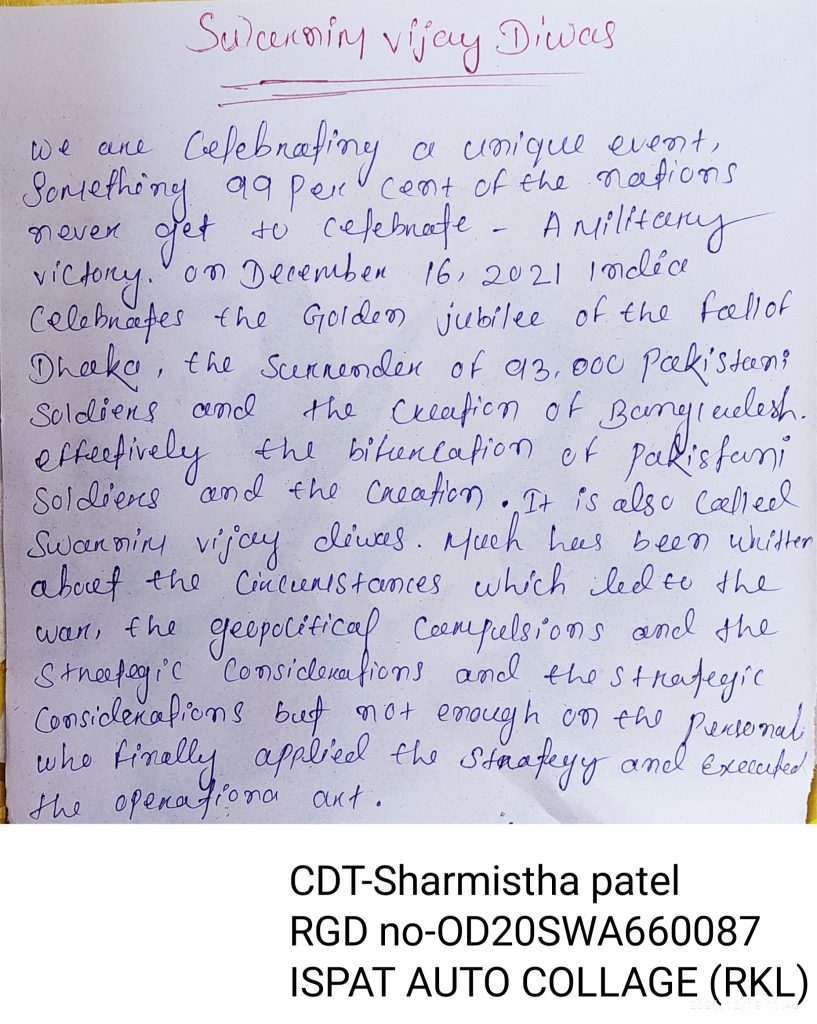 Swarnim vijay Diwas
we are Celebrating a unique event,
Something 99 Per cent of the nations
never get to celebrate - A Military
victory. on December 16, 2021 India
Celebrates the Golden jubilee of the fall of
Dhaka, the Surrender of 93,000 Pakistani
Soldiers and the Creation of Bangladesh.
effectively the bifurcation of Pakistani
Soldiers and the Creation. It is also Called
Swarnim vijay diwas. Much has been Whitten
about the Circumstances which led to the
war, the geopolitical Compulsions and the
Strategic Considerations and the strategic
Considerations but not enough on the Personal
who finally applied the Strategy and Executed
the operationa art.
CDT-Sharmistha patel
RGD no-OD20SWA660087
ISPAT AUTO COLLAGE (RKL)